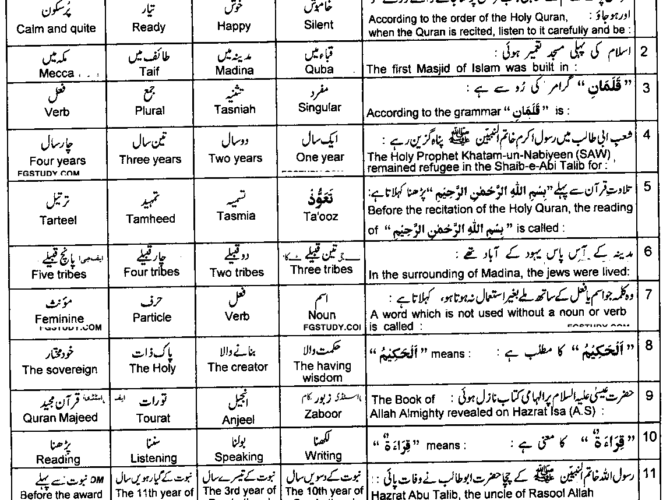 اور ہو جاؤ :
According to the order of the Holy Quran,
when the Quran is recited, listen to it carefully and be :
خاموش
Silent
خوش
Happy
تیار
Ready
پرسکون
Calm and quite
2
اسلام کی پہلی مسجد تعمیر ہوئی :
The first Masjid of Islam was built in :
قباء میں
Quba
مدینہ میں
Madina
طائف میں
Taif
مکہ میں
Mecca
3
”قَلَمَانِ“ گرامر کی رُو سے ہے :
According to the grammar ”قَلَمَانِ“ is :
مفرد
Singular
تثنیہ
Tasniah
جمع
Plural
فعل
Verb
4
شعب ابی طالب میں رسول اکرم خاتم النبیین ﷺ پناہ گزین رہے :
The Holy Prophet Khatam-un-Nabiyeen (SAW)
remained refugee in the Shaib-e-Abi Talib for :
ایک سال
One year
دو سال
Two years
تین سال
Three years
چار سال
Four years
FGSTUDY.COM
5
تلاوتِ قرآن سے پہلے ”بِسْمِ اللّٰهِ الرَّحْمٰنِ الرَّحِيْمِ“ پڑھنا کہلاتا ہے:
Before the recitation of the Holy Quran, the reading
of ”بِسْمِ اللّٰهِ الرَّحْمٰنِ الرَّحِيْمِ“ is called :
تَعَوُّذْ
Ta'ooz
تسمیہ
Tasmia
تمہید
Tamheed
ترتیل
Tarteel
6
مدینہ کے آس پاس یہود کے آباد تھے :
In the surrounding of Madina, the jews were lived:
تین قبیلے
Three tribes
دو قبیلے
Two tribes
چار قبیلے
Four tribes
پانچ قبیلے
Five tribes
7
وہ کلمہ جو اسم یا فعل کے ساتھ ملے بغیر استعمال نہ ہوتا ہو، کہلاتا ہے :
A word which is not used without a noun or verb
is called :
FGSTUDY.COM
اسم
Noun
FGSTUDY.COI
فعل
Verb
حرف
Particle
مؤنث
Feminine
FGSTUDY.COM
8
”اَلْحَكِيْمُ“ کا مطلب ہے : means : ”اَلْحَكِيْمُ“
حکمت والا
The having
wisdom
بنانے والا
The creator
پاک ذات
The Holy
خود مختار
The sovereign
9
حضرت عیسٰی علیہ السلام پر الہامی کتاب نازل ہوئی : The Book of
Allah Almighty revealed on Hazrat Isa (A.S) :
زبور
Zaboor
انجیل
Anjeel
تورات
Tourat
قرآن مجید
Quran Majeed
10
”قِرَاءَةٌ“ کا معنی ہے : means : ”قِرَاءَةٌ“
لکھنا
Writing
بولنا
Speaking
سننا
Listening
پڑھنا
Reading
11
رسول اللہ خاتم النبیین ﷺ کے چچا حضرت ابو طالب نے وفات پائی ::
Hazrat Abu Talib, the uncle of Rasool Allah
نبوت کے دسویں سال
The 10th year of
نبوت کے تیسرے سال
The 3rd year of
نبوت کے گیارہویں سال
The 11th year of
نبوت سے پہلے
Before the award